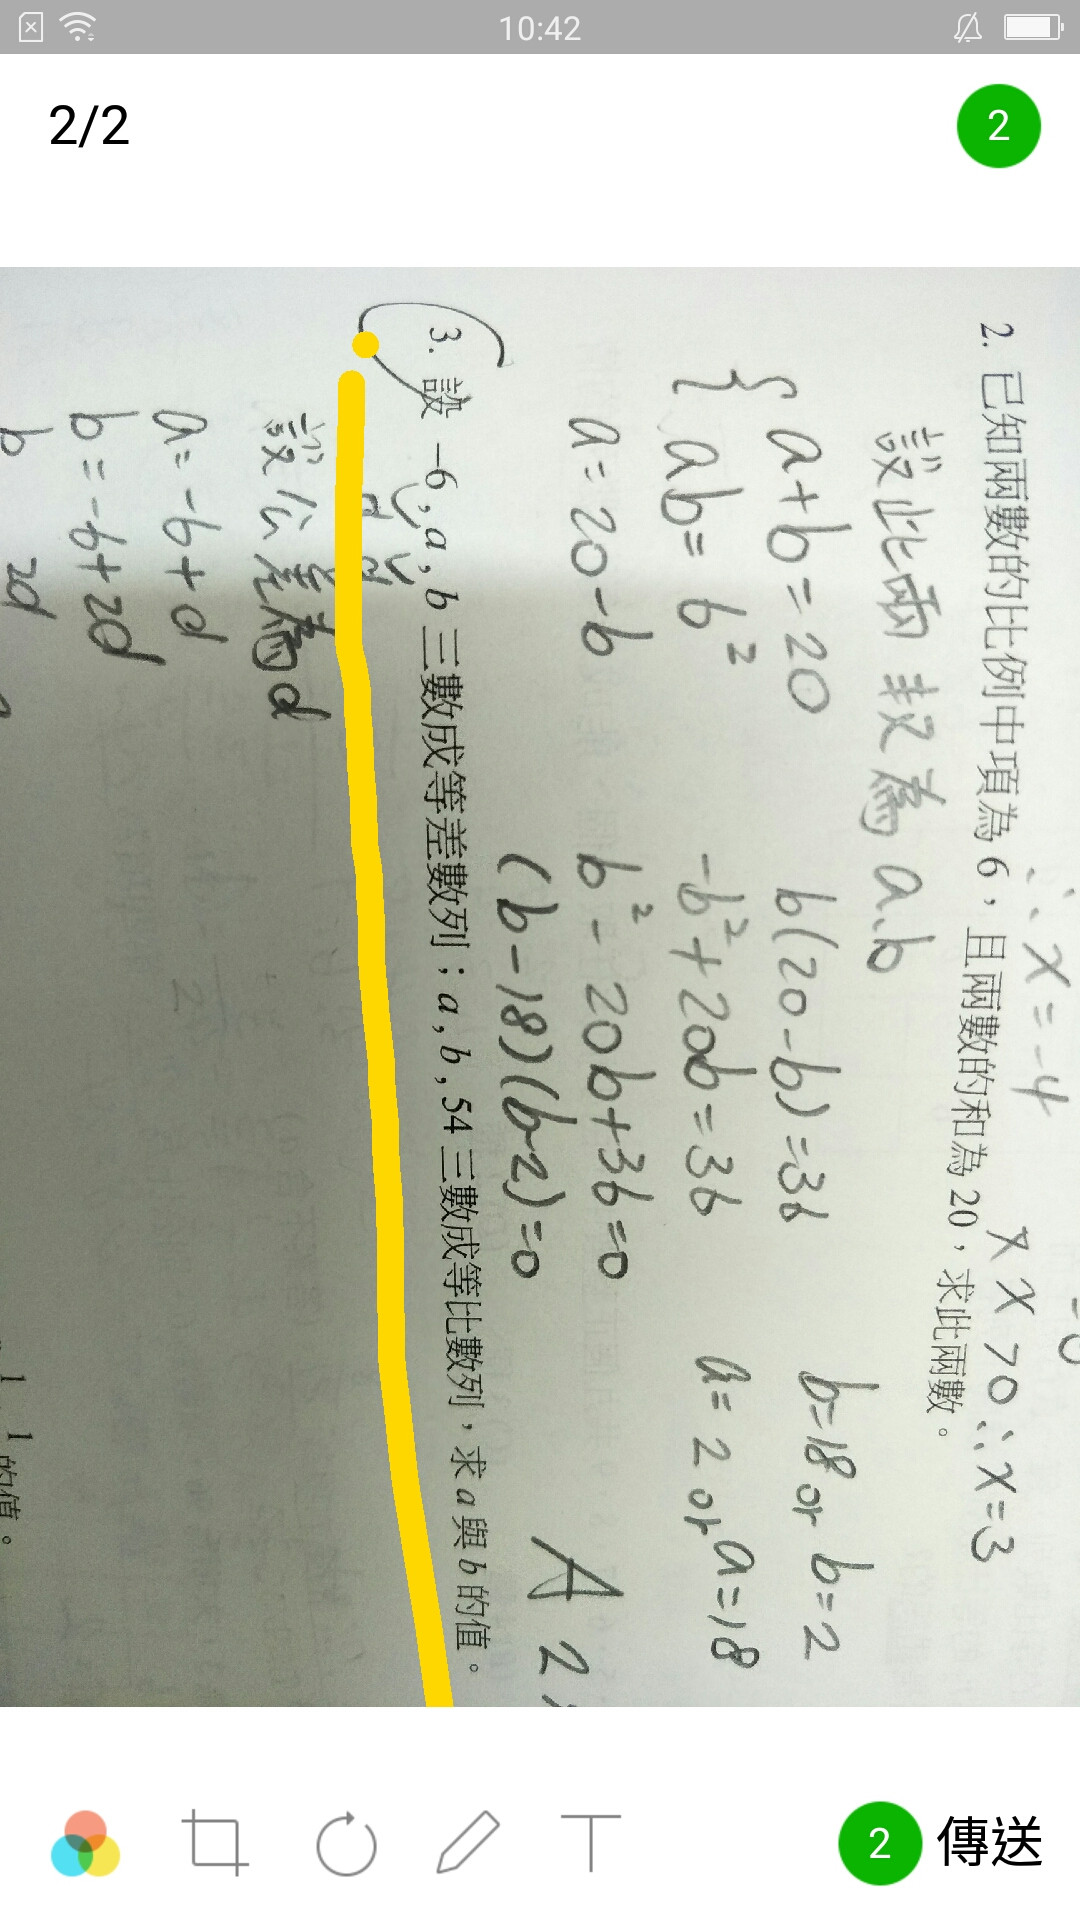 10:42
2/2
2
∴ x = -4
x x > 0 ∴ x = 3
2. 已知兩數的比例中項為 6，且兩數的和為 20，求此兩數。
設此兩數為 a.b
{ a + b = 20
ab = 6²
a = 20 - b
b(20 - b) = 36
-b² + 20b = 36
b² - 20b + 36 = 0
(b - 18)(b - 2) = 0
b = 18 or b = 2
a = 2 or a = 18
A 2
3. 設 -6 , a , b 三數成等差數列；a , b , 54 三數成等比數列，求 a 與 b 的值。
d d
設公差為d
a = -6 + d
b = -6 + 2d
1 1 的值。
2 傳送